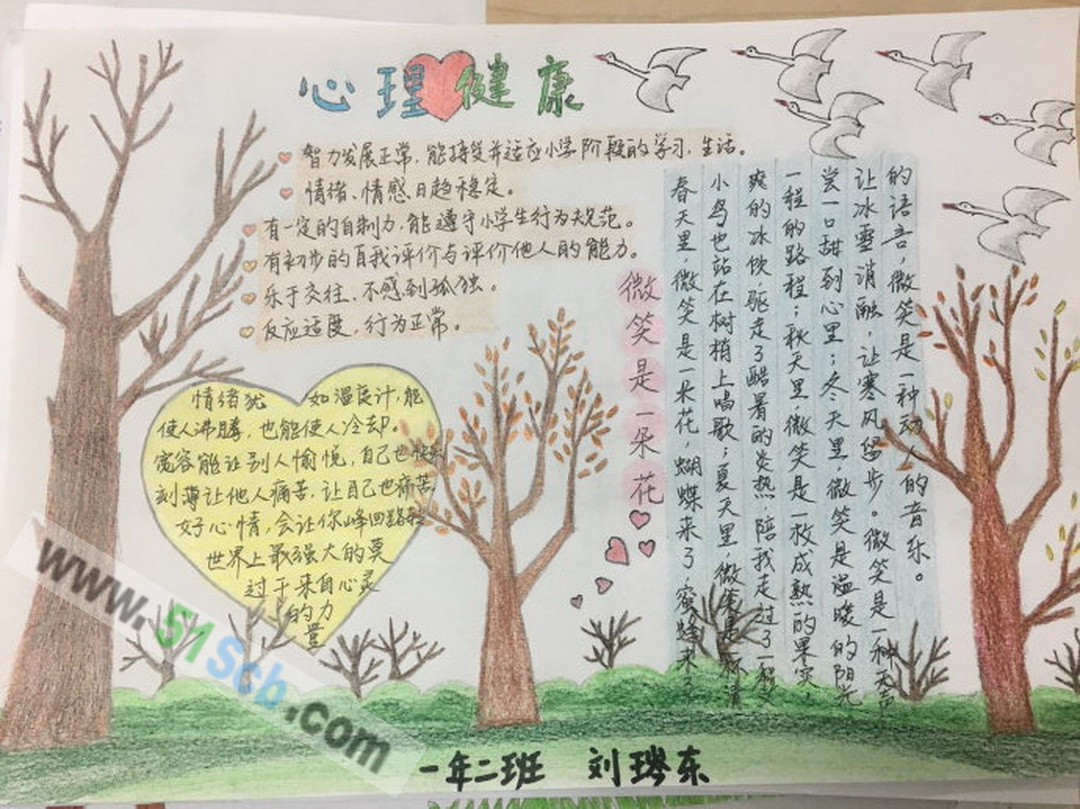 心理健康
智力发展正常,能接受并适应小学阶段的学习,生活。
情绪、情感日趋稳定。
有一定的自制力,能遵守小学生行为规范。
有初步的自我评价与评价他人的能力。
乐于交往、不感到孤独。
反应适度,行为正常。
情绪犹如温度计,能
使人沸腾,也能使人冷却。
宽容能让别人愉悦,自己也快
刻薄让他人痛苦,让自己也痛苦
好心情,会让你峰回路转
世界上最强大的莫
过于来自心灵
的力
量
微笑是一朵花
春天里,微笑是一朵花,蝴蝶来了,蜜蜂来了
小鸟也站在树梢上唱歌;夏天里,微笑是一杯清
爽的冰饮,驱走了酷暑的炎热,陪我走过了一程又
一程的路程;秋天里,微笑是一枚成熟的果实,
尝一口甜到心里;冬天里,微笑是温暖的阳光
让冰雪消融,让寒风留步。微笑是一种无声
的语言,微笑是一种动人的音乐。
一年二班 刘 东
www.51Scb.com